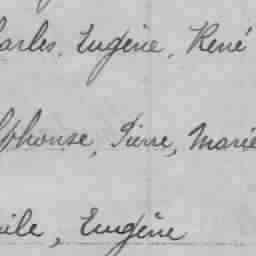 harles, Eugène, René
lphonse, Pierre, Marie
mile, Eugène